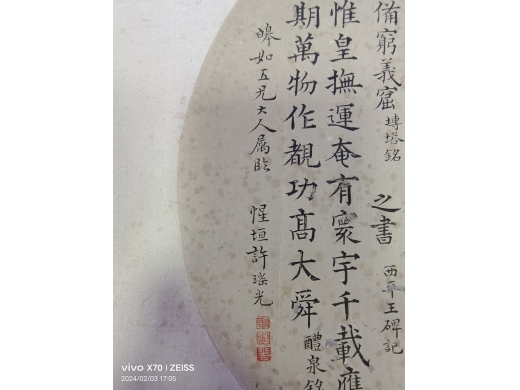 備窮義窟 塼塔銘 之書 西平王碑記
惟皇撫運奄有寰宇千載應
期萬物作覩功高大舜 醴泉銘
皞如五兄大人属臨 惺垣許瑤光
vivo X70 | ZEISS
2024/02/03 17:05